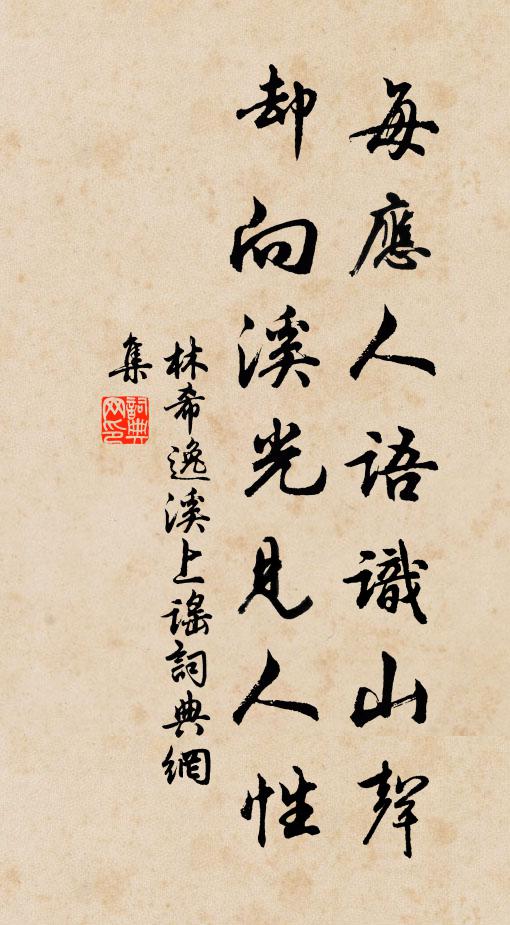 每應人語識山聲
却向溪光見人性
林希逸溪上謠詞典網
集
詞典網印